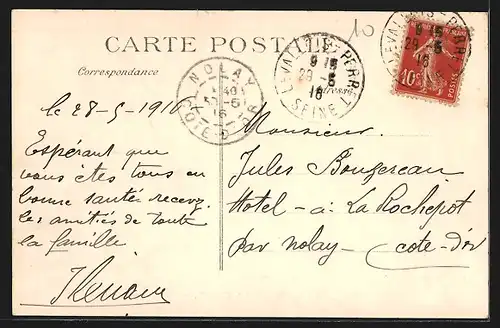 10
CARTE POSTALE
Correspondance
Adresse
NOLAY
30-5
16
COTE-D'OR
LEVALLOIS-PERRET
9 15
29-5
16
SEINE
LEVALLOIS-PERRET
9 15
29-5
16
10c
le 28-5-1916
Espérant que
vous êtes tous en
bonne santée recevez
les amitiés de toute
la famille
Monsieur
Jules
Hotel - à La Rochepot
par nolay - cote-d'or